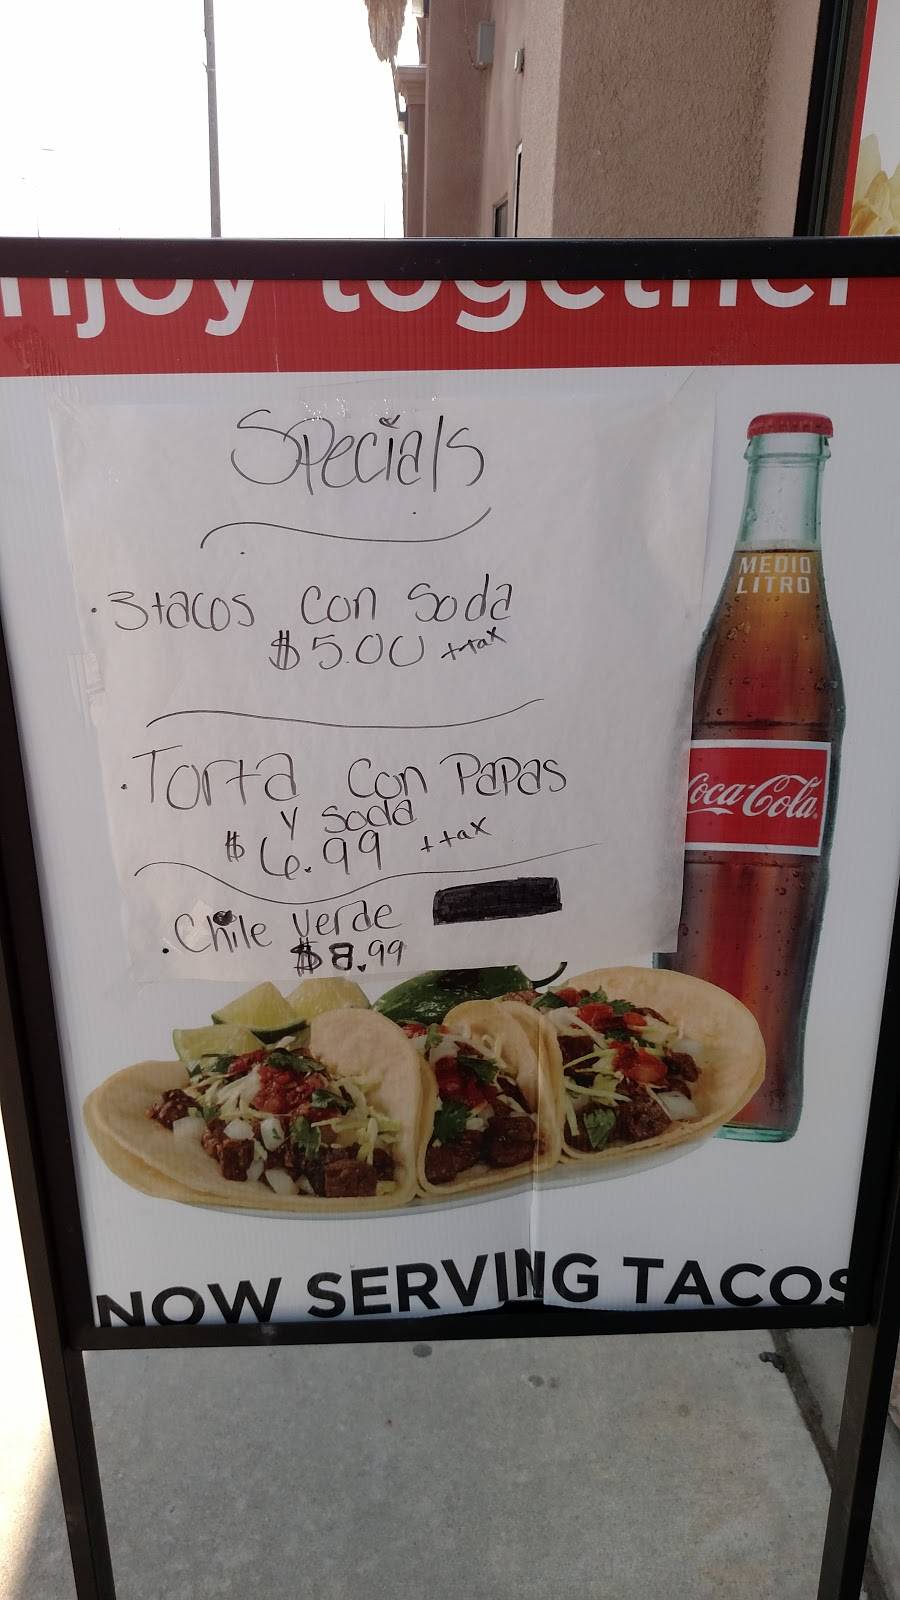 njoy together
Specials
· 3 tacos con Soda
$5.00 + tax
· Torta con Papas
y soda
$6.99 + tax
· Chile verde
$8.99
MEDIO
LITRO
Coca-Cola
NOW SERVING TACOS